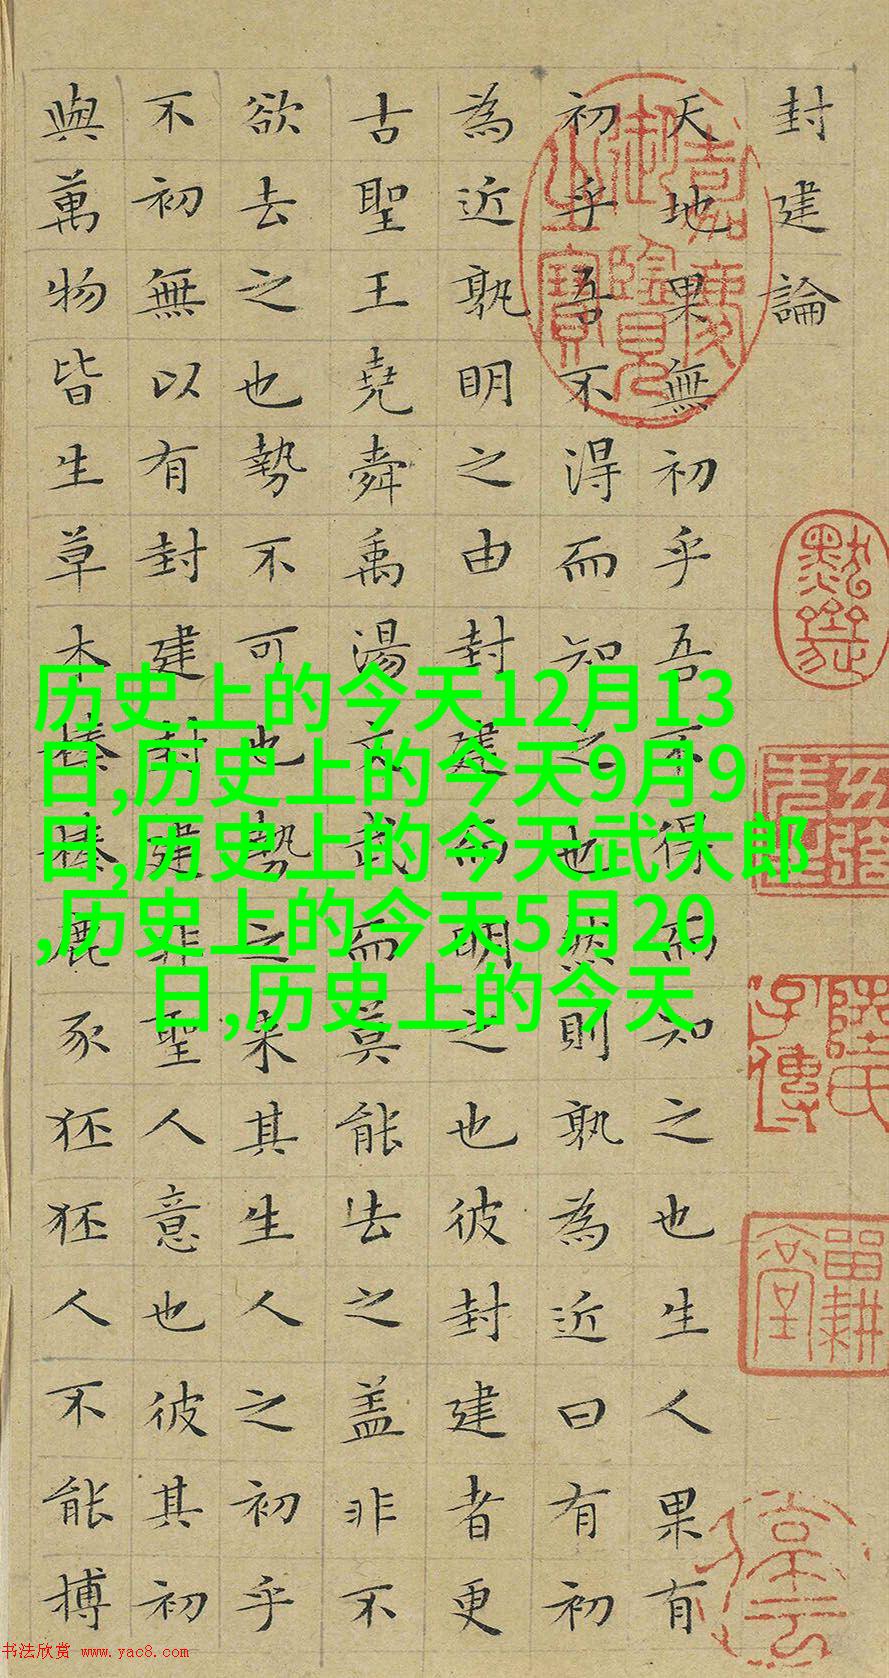 封建論
天地果無初乎吾不得而知之也生人果有
初乎吾不淂而知之也然則孰為近曰有初
為近孰明之由封建而明之也彼封建者更
古聖王堯舜禹湯文武而莫能去之盖非不
欲去之也勢不可也勢之来其生人之初乎
不初無以有封建封建非聖人意也彼其初
與萬物皆生草木榛榛鹿豕狉狉人不能搏
嘉慶御覽之寶
陸氏子傳
畱耕堂
历史上的今天12月13
日,历史上的今天9月9
日,历史上的今天武大郎
,历史上的今天5月20
日,历史上的今天
书法欣赏 www.yac8.com